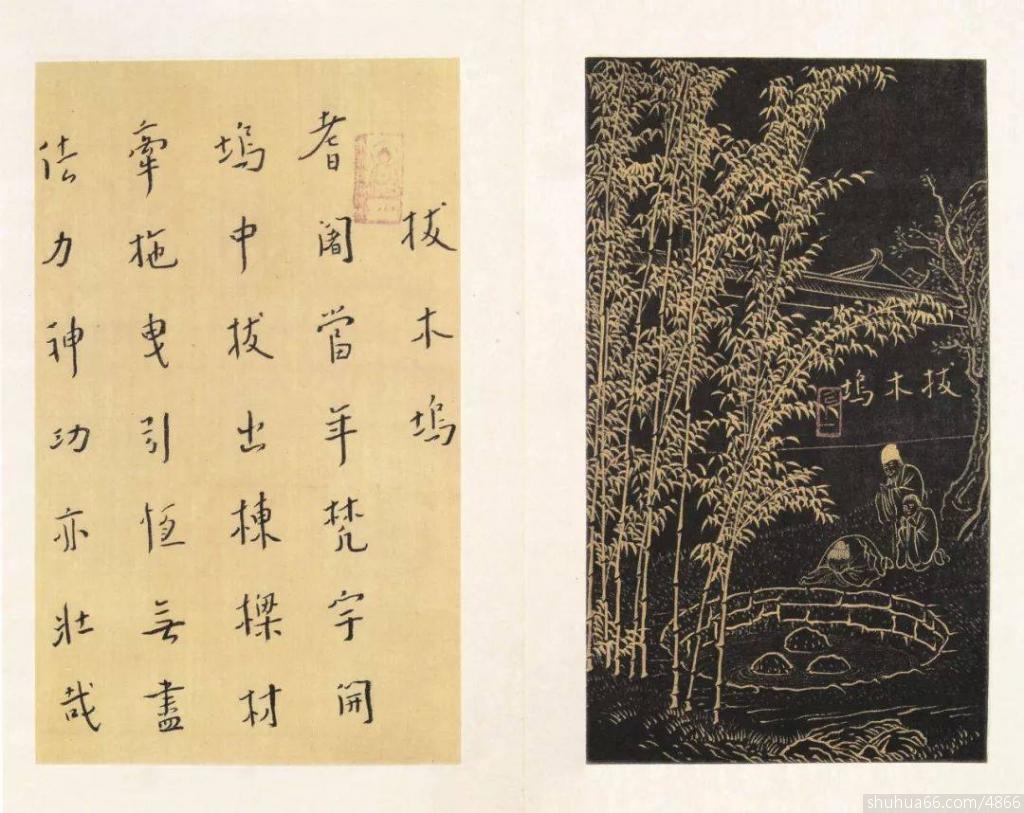 拔木塢
耆闍當年梵宇開
塢中拔出棟樑材
牽拖曳引恒無盡
佉力神功亦壯哉
拔木塢
shuhua66.com/4866